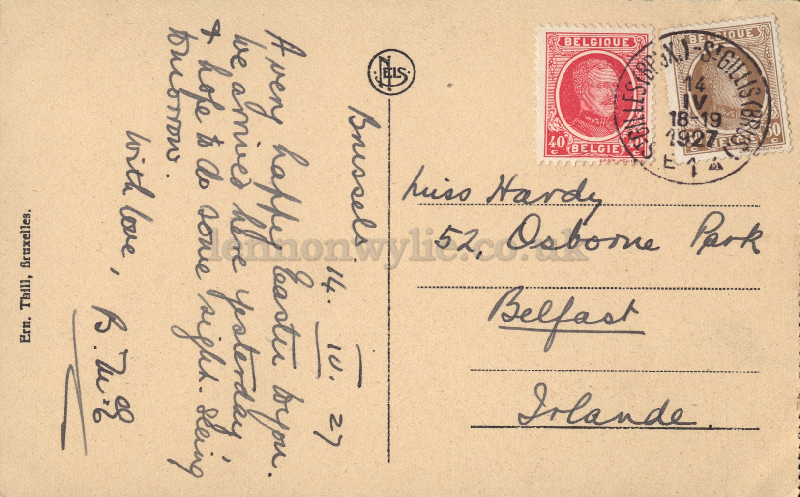 Brussels 14. IV. 27
A very happy Easter to you.
We arrived here yesterday,
& hope to do some sight-seeing
tomorrow.
With love,
NELS
Ern. Thill, Bruxelles.
BELGIQUE
40 c
BELGIË
BELGIQUE
14
IV
18-19
1927
E 1 A
Miss Hardy
52, Osborne Park
Belfast
Irlande.
lennonwylie.co.uk